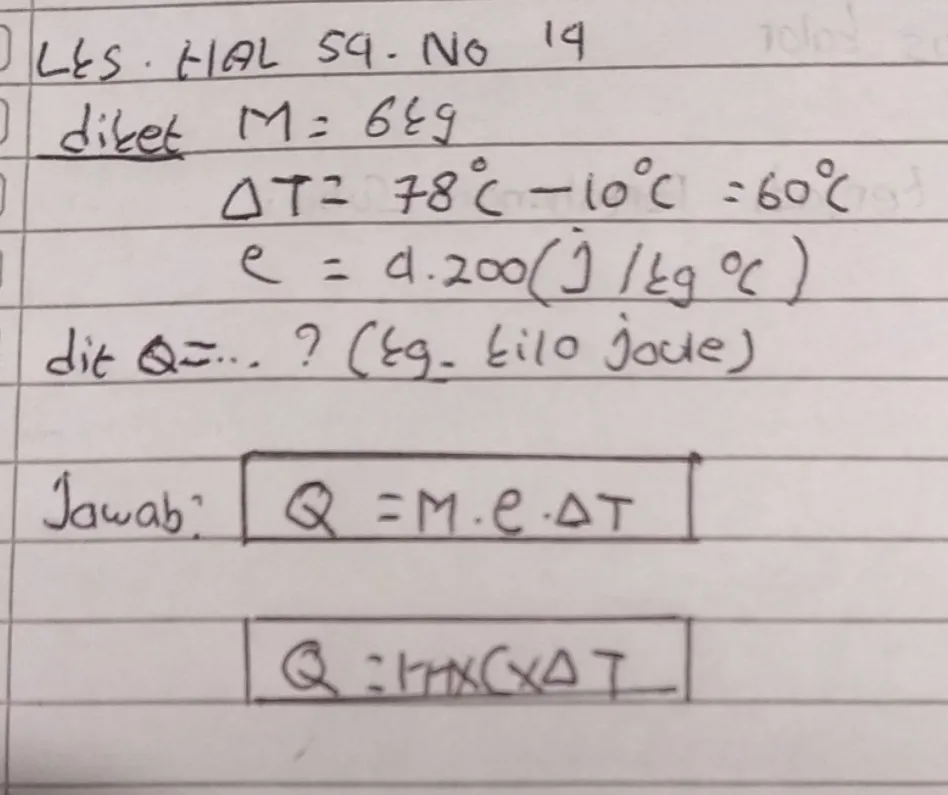 LKS. HAL 59. No 19
diket M = 6kg
ΔT = 78°C - 10°C = 60°C
e = 4.200 (j/kg °C)
dit Q = ... ? (kg - kilo joule)
Jawab: Q = M . e . ΔT
Q = m x C x ΔT